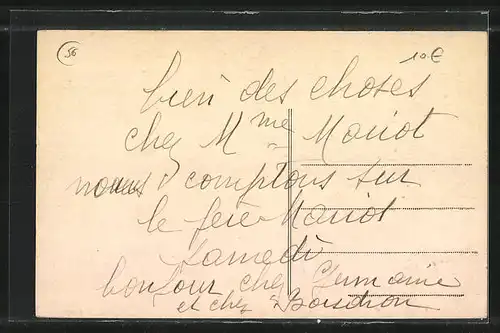 56
10€
bien des choses
chez Mme Mariot
nous comptons sur
le père Mariot
Samedi
bonjour chez Germaine
et chez Boudron